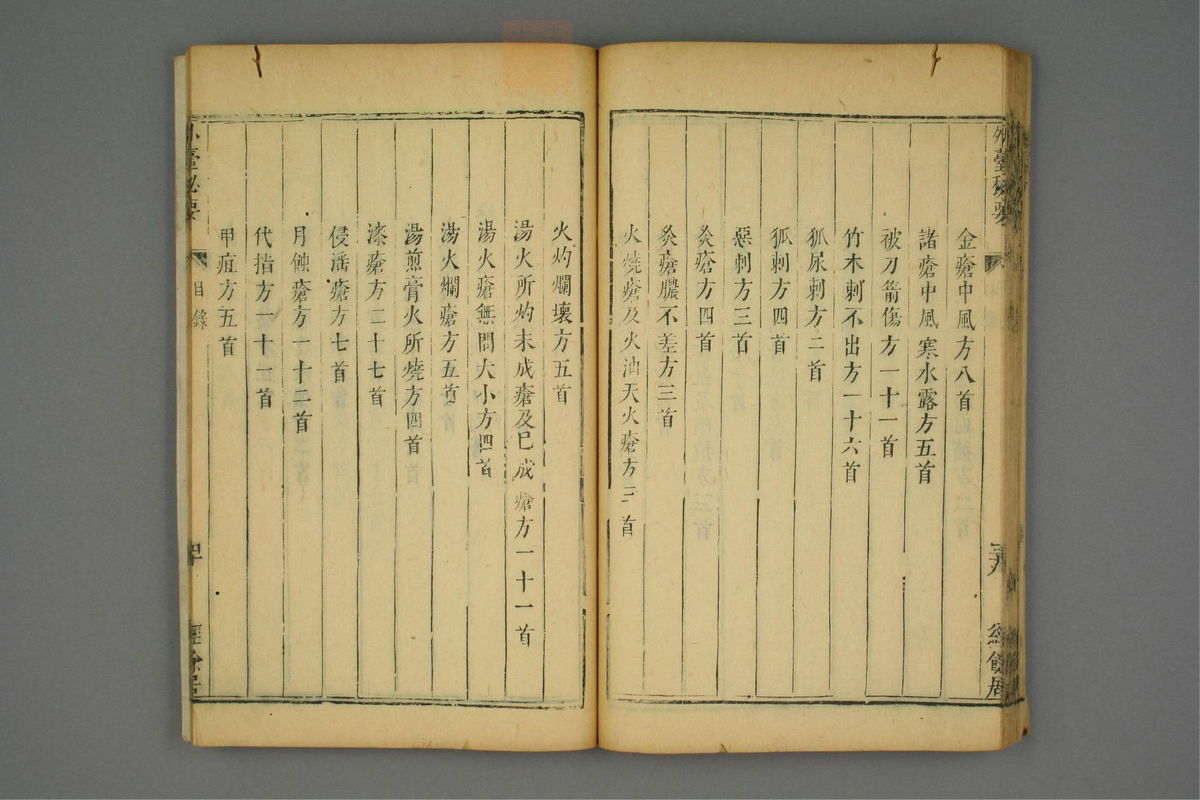 外臺秘要
金瘡中風方八首
諸瘡中風寒水露方五首
被刀箭傷方一十一首
竹木刺不出方一十六首
狐尿刺方二首
狐刺方四首
惡刺方三首
灸瘡方四首
灸瘡膿不差方三首
火燒瘡及火油天火瘡方三首
經餘居
火灼爛壞方五首
湯火所灼未成瘡及已成瘡方一十一首
湯火瘡無問大小方四首
湯火爛瘡方五首
湯煎膏火所燒方四首
漆瘡方二十七首
侵淫瘡方七首
月蝕瘡方一十二首
代指方一十一首
甲疽方五首
外臺秘要
目錄
經餘居